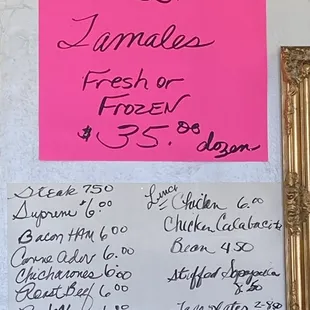 Tamales
Fresh or
Frozen
$35.00 dozen
Steak 750
Supreme $6.00
Bacon HAM 6.00
Carne Adov 6.00
Chicharones 6.00
Roast Beef 6.00
6.00
Lunch
Chicken 6.00
Chicken Calabacitas
Bean 4.50
Stuffed Sopapia
8.50
2-8.50